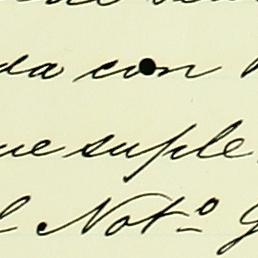 da con
ue suple
l Not.º